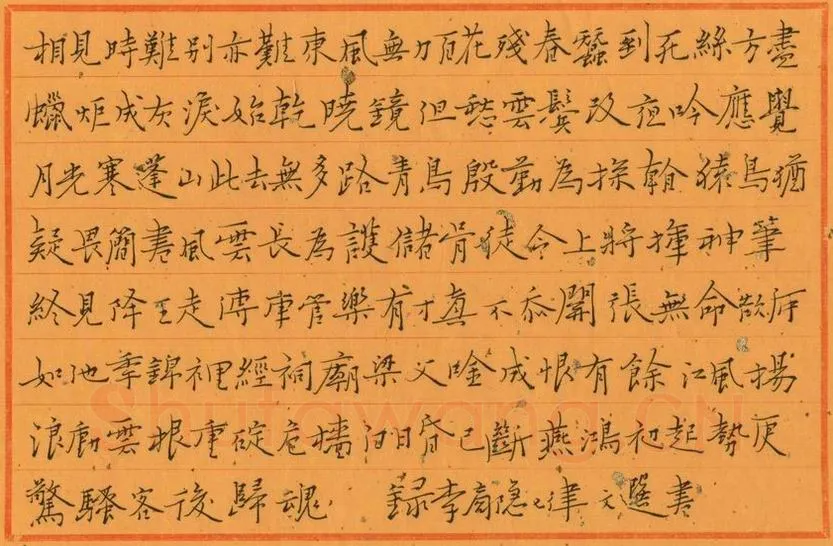 相見時難别亦難東風無力百花殘春蠶到死絲方盡
蠟炬成灰淚始乾曉鏡但愁雲鬢改夜吟應覺
月光寒蓬山此去無多路青鳥殷勤為探翰猿鳥猶
疑畏簡書風雲長為護儲胥徒令上將揮神筆
終見降王走傳車管樂有才真不忝關張無命欲何
如他年錦裡經祠廟梁父吟成恨有餘江風揚
浪動雲根重碇危檣白日昏已斷燕鴻初起勢更
驚騷客後歸魂 錄李商隱七律文選書
Shufawang.CN